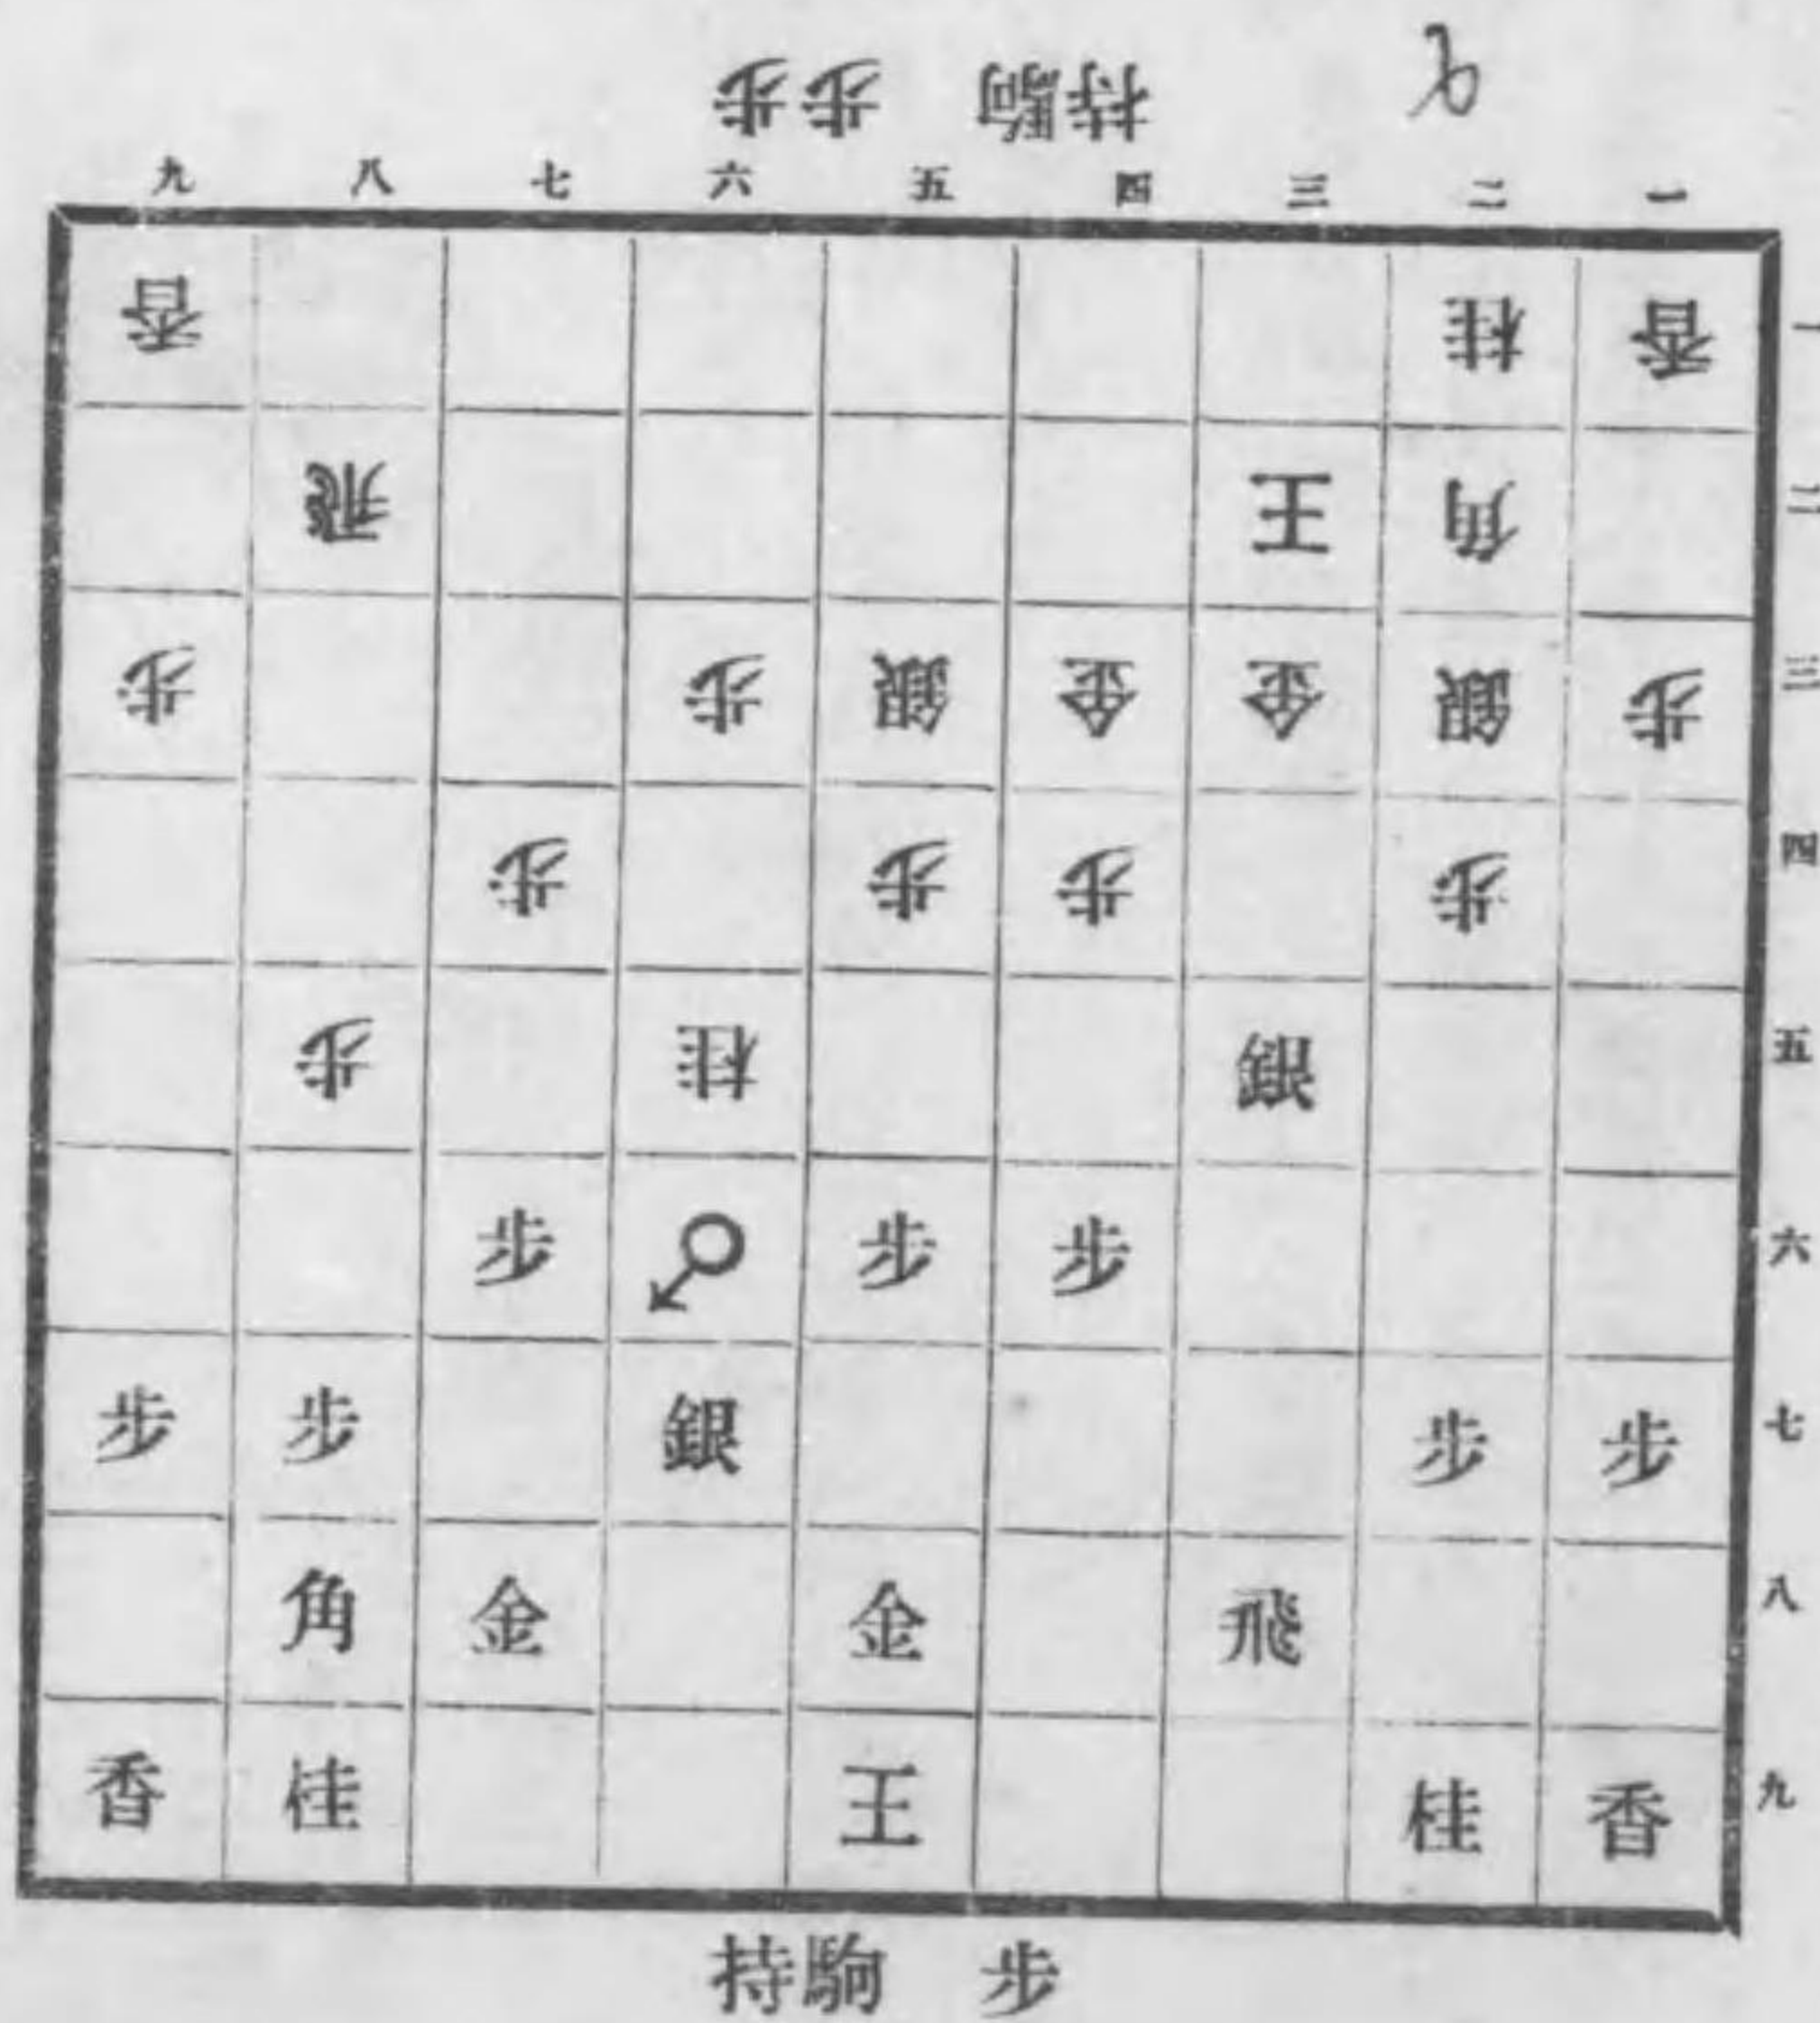 持駒 歩歩
九 八 七 六 五 四 三 二 一
香 桂 香 一
飛 王 角 二
歩 歩 銀 金 金 銀 歩 三
歩 歩 歩 歩 四
歩 桂 銀 五
歩 歩 歩 六
歩 歩 銀 歩 歩 七
角 金 金 飛 八
香 桂 王 桂 香 九
持駒 歩